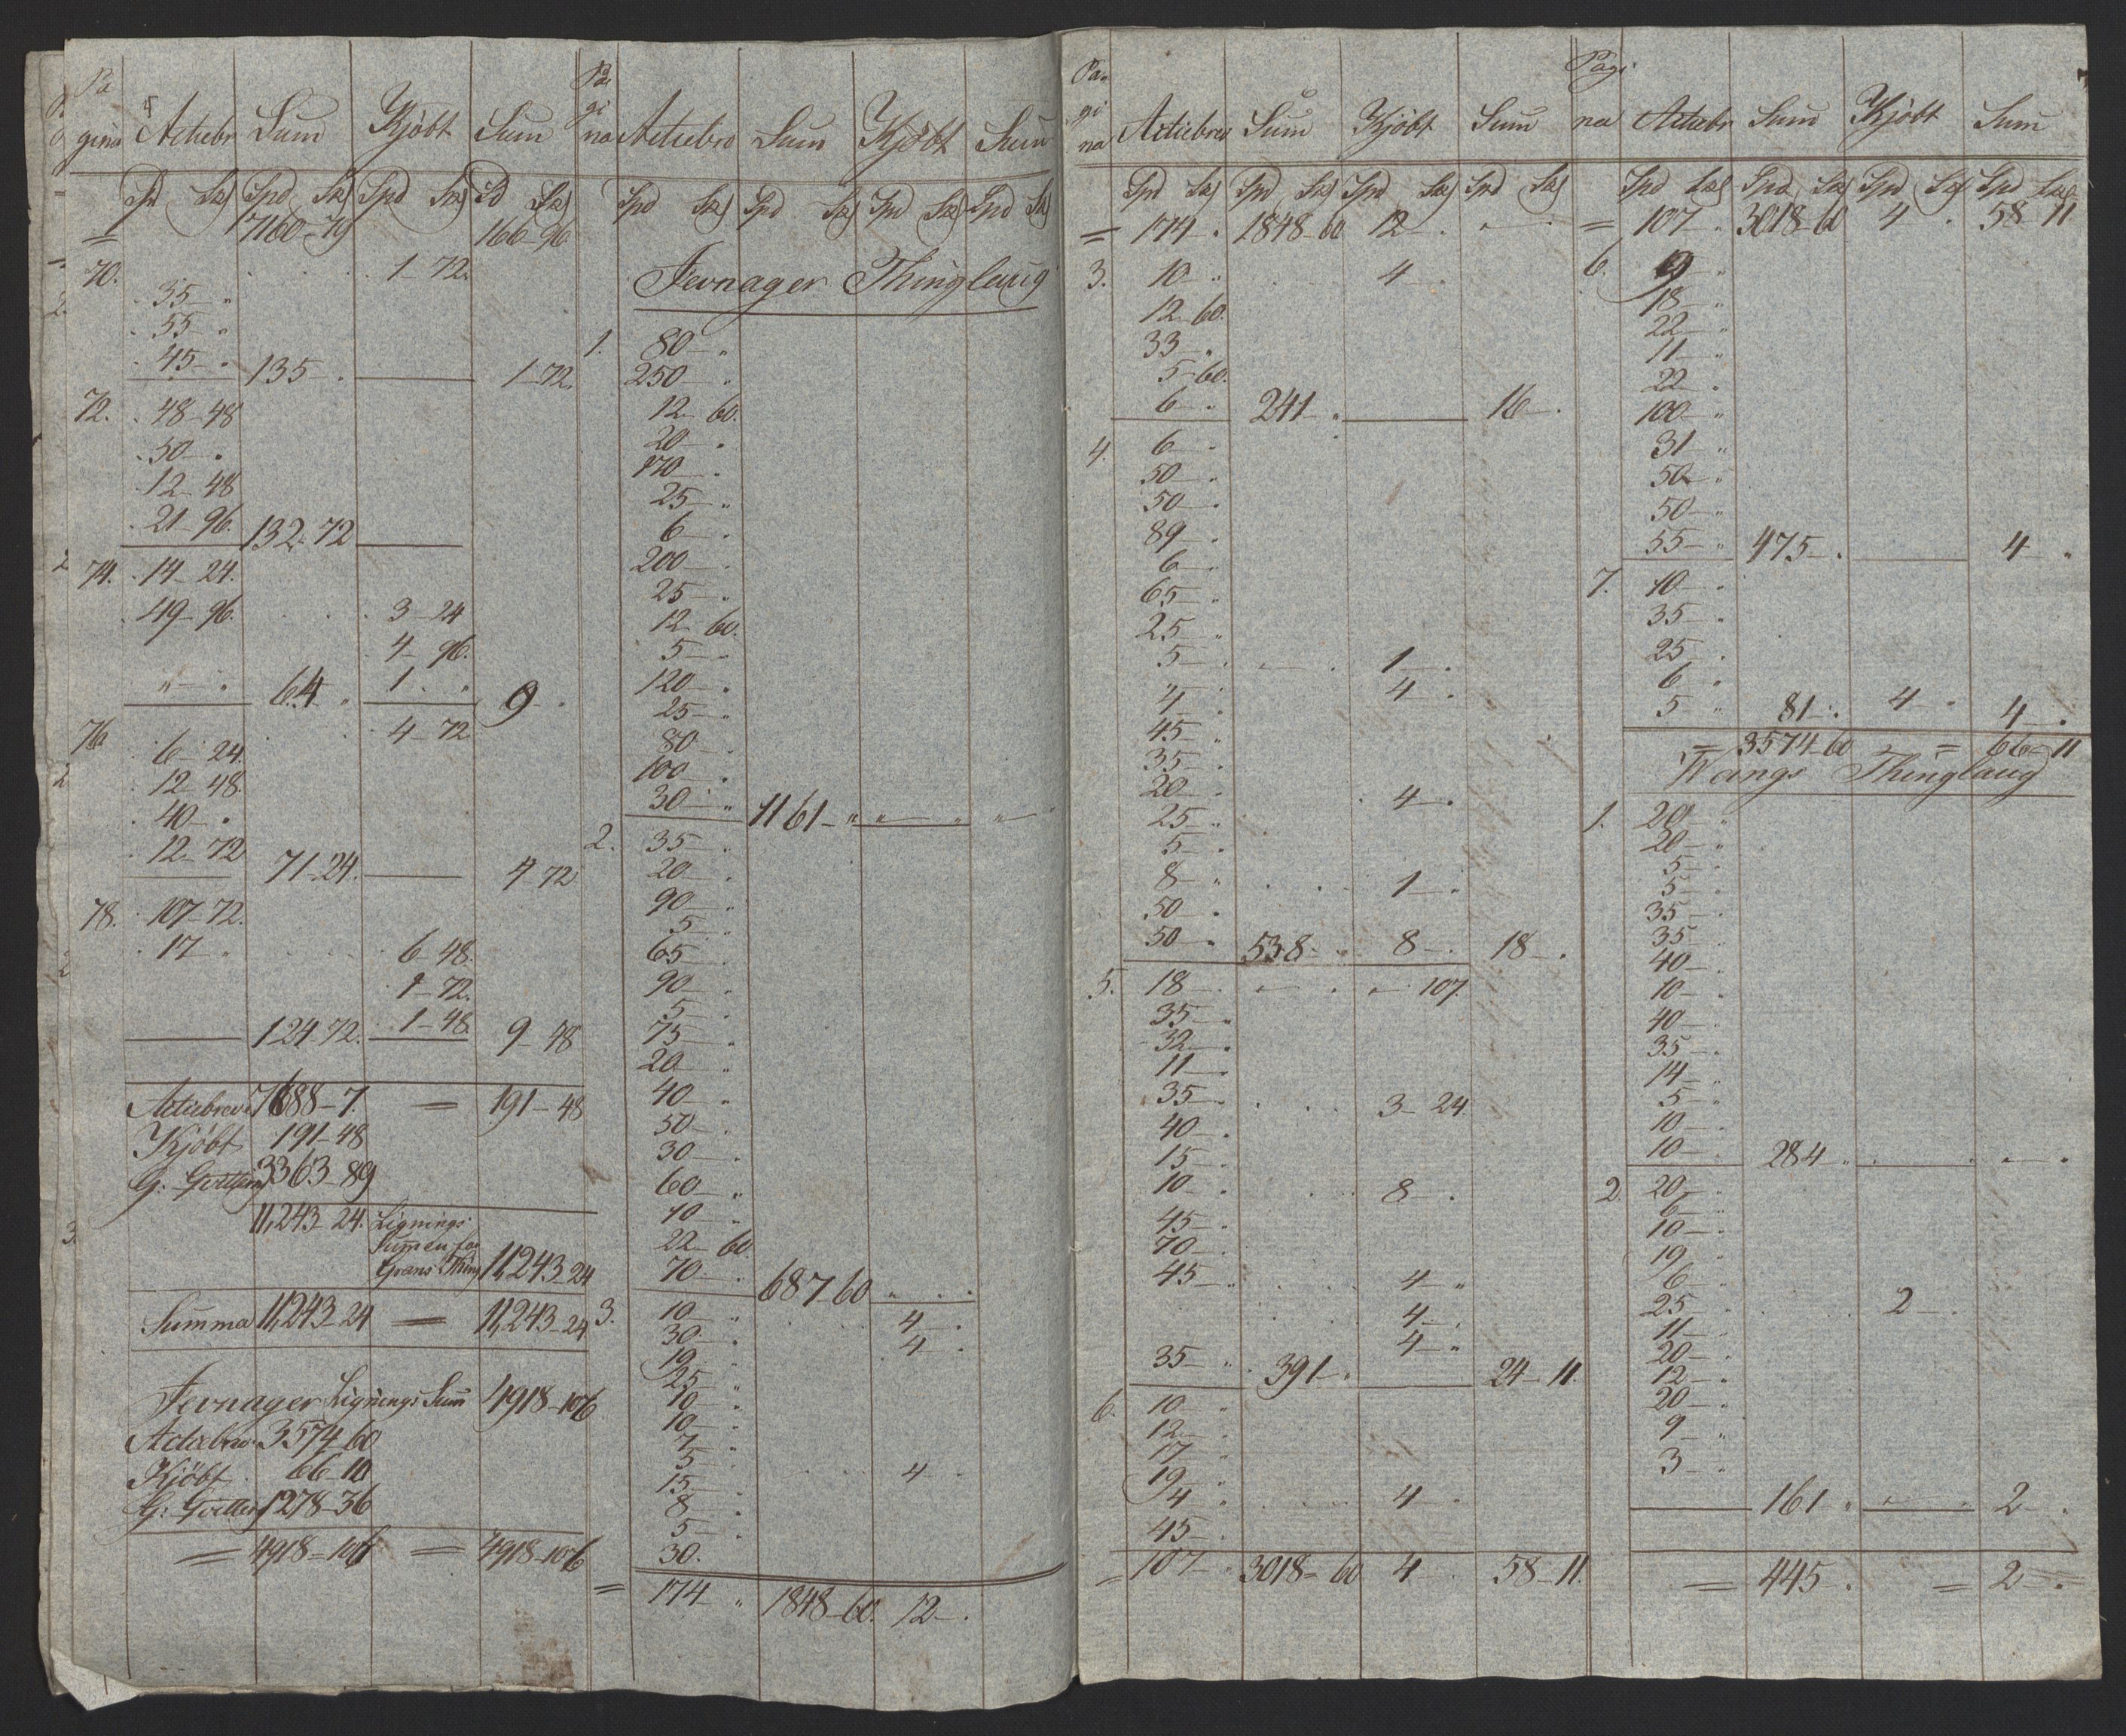 Pagina Actiebr Sum Kjöbt Sum
Spd Sk Spd Sk Spd Sk Spd Sk
= 7160-79 166-96
70. 1-72.
35 "
55 "
45 " 135 " 1-72.
72. 48-48
50 "
12-48
21-96. 132-72
74. 14-24.
49-96. 3-24
4-96.
" " 64 " 1 " 9 "
76 4-72
6-24.
12-48.
40 "
12-72 71-24. 4-72
78. 107-72.
17 " 6-48.
1-72.
124-72. 1-48. 9-48
Actiebreve 7688-7. = 191-48
Kjöbt 191-48
G: 3363-89
11,243-24. Lignings
Summen for
Grans Thing 11,243-24
Summa 11,243-24 = 11,243-24
Jevnager Lignings Sum 4918-106
Actiebrev. 3574-60
Kjöbt 66-10
G: 1278-36
= 4918-106 = 4918-106
Pagina Actiebre Sum Kjöbt Sum
Spd Sk Spd Sk Spd Sk Spd Sk
Jevnager Thinglaug
1. 80 "
250 "
12-60.
20 "
170 "
25 "
6 "
200 "
25 "
12-60.
5 "
120 "
25 "
80 "
100 "
30 " 1161 " " " "
2. 35 "
20 "
90 "
5 "
65 "
90 "
5 "
75 "
20 "
40 "
50 "
30 "
60 "
10 "
22-60
70 " 687-60 "
3. 10 " 4 "
30 " 4 "
19 "
25 "
10 "
10 "
7 "
5 " 4 "
15 "
8 "
5 "
30.
= 174 " 1848-60. 12 "
Pagina Actiebrev Sum Kjöbt Sum
Spd Sk Spd Sk Spd Sk Spd Sk
= 174 " 1848-60 12 "
3. 10 " 4
12-60.
33 "
5-60.
6 " 241 " 16 "
4. 6 "
50 "
50 "
89 "
6 "
65 "
25 "
5 " 1 "
4 " 4 "
45 "
35 "
20 " 4 "
25 "
5 "
8 " 1 "
50 "
50 " 538 " 8 " 18 "
5. 18 " 107.
35 "
32 "
11 "
35 " 3-24
40 "
15 "
10 " 8 "
45 "
70 "
45 " 4 "
4 "
4 "
35 " 391 " 24-11.
6. 10 "
12 "
17 "
19 "
4 " 4 "
45 "
= 107 " 3018-60 4 58-11.
Pagina Actiebr Sum Kjöbt Sum
Spd Sk Spd Sk Spd Sk Spd Sk
= 107 " 3018-60 4 " 58-11
6. 9 "
18 "
22 "
11 "
22 "
100 "
31 "
50 "
50 "
55 " 475 " 4 "
7. 10 "
35 "
25 "
6 "
5 " 81 " 4 " 4 "
= 3574-60 = 66-11
Wangs Thinglaug
1. 20 "
20 "
5 "
5 "
35 "
35 "
40 "
10 "
40 "
35 "
14 "
5 "
10 "
10 " 284 "
2. 20 "
6 "
10 "
19 "
6 "
25 " 2 "
11 "
20 "
12 "
20 "
9 "
3 "
161 " 2 "
= 445 " = 2 "